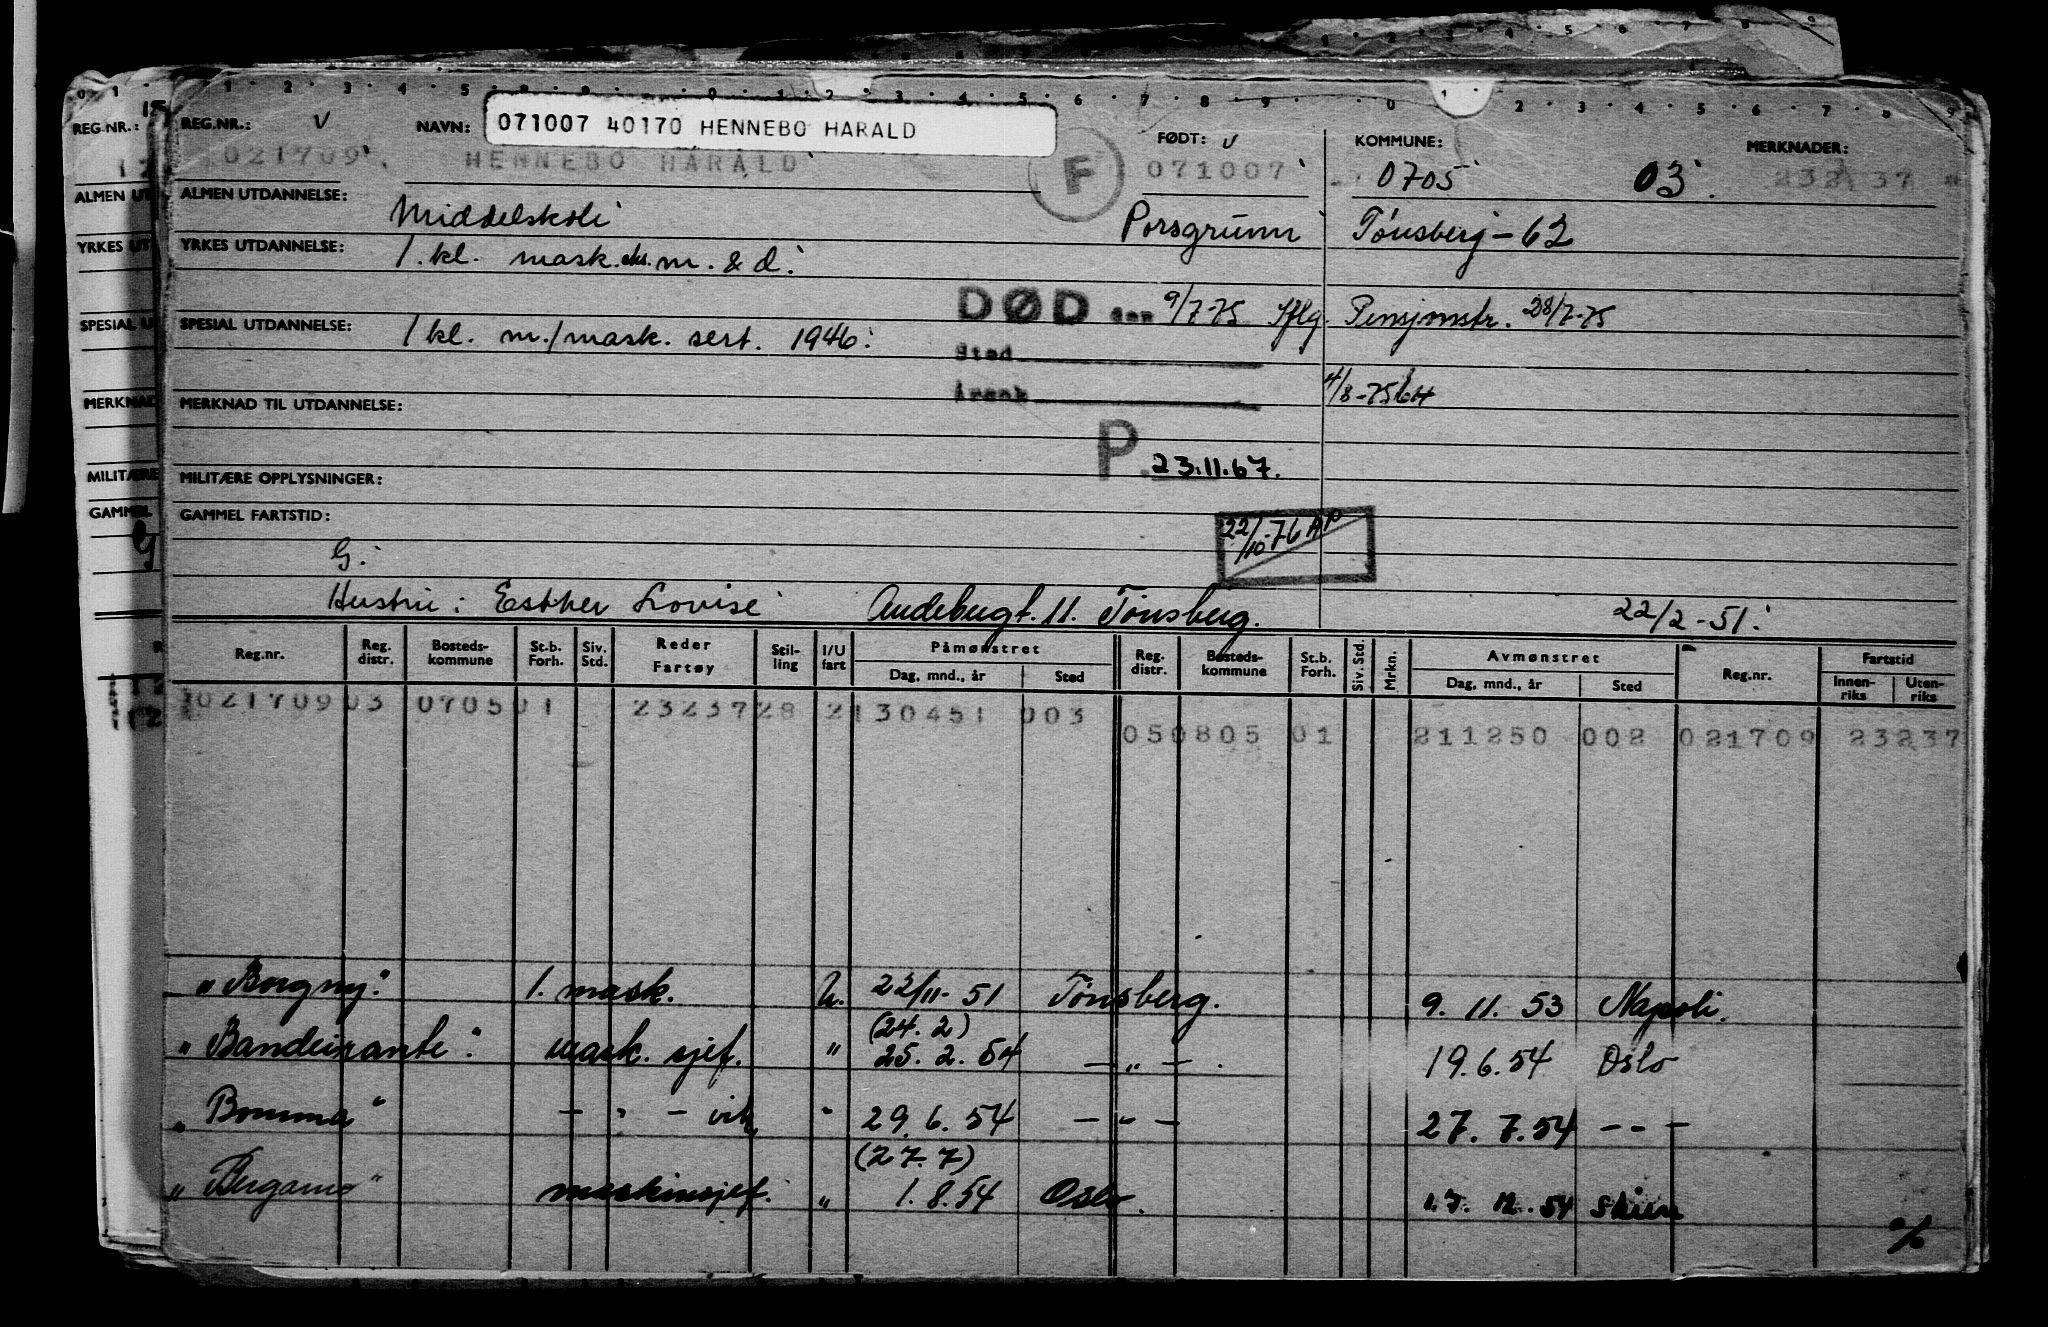 REG.NR.: V NAVN: 071007 40170 HENNEBO HARALD FØDT: V KOMMUNE: MERKNADER:
021709 HENNEBO HARALD F 071007 0705 03 23237
ALMEN UTDANNELSE: Middelskole Porsgrunn Tønsberg - 62
YRKES UTDANNELSE: 1. kl. mask. eks. m. & d.
DØD den 9/7-75 Iflg. Pensjonstr. 28/7-75
SPESIAL UTDANNELSE: 1 kl. m./mask. sert. 1946.
Sted
Årsak 4/8-75
MERKNAD TIL UTDANNELSE:
P. 23.11.67.
MILITÆRE OPPLYSNINGER:
GAMMEL FARTSTID:
22/10-76 AP
G.
Hustru: Esther Lovise Andebugt. 11. Tønsberg. 22/2-51.
Reg.nr. Reg. distr. Bosteds-kommune St.b. Forh. Siv. Std. Reder Fartøy Stil-ling I/U fart Påmønstret Dag, mnd., år Sted Reg. distr. Bosteds-kommune St.b. Forh. Siv. Std. Mrkn. Avmønstret Dag, mnd., år Sted Reg.nr. Fartstid Innen-riks Uten-riks
021709 03 0705 01 23237 28 2 130451 003
050805 01 211250 002 021709 23237
"Borgny" 1. mask. U. 22/11-51 Tønsberg. 9. 11. 53 Napoli.
(24. 2)
"Bandeirante" mask. sjef. " 25. 2. 54 - " - . 19. 6. 54 Oslo
"Bomma" - " - vik " 29. 6. 54 - " - 27. 7. 54 - - -
(27. 7)
"Bergamo" maskinsjef. " 1. 8. 54 Oslo. 12. 54 Skien
%